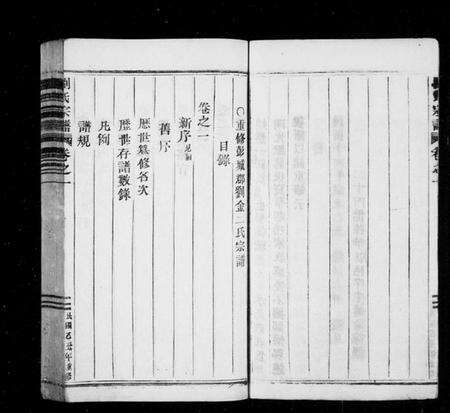 ○重修彭城郡劉金二氏宗譜
目錄
卷之一
新序
舊序
歷世纂修名次
歷世存譜數錄
凡例
譜規
劉氏宗譜
卷之一